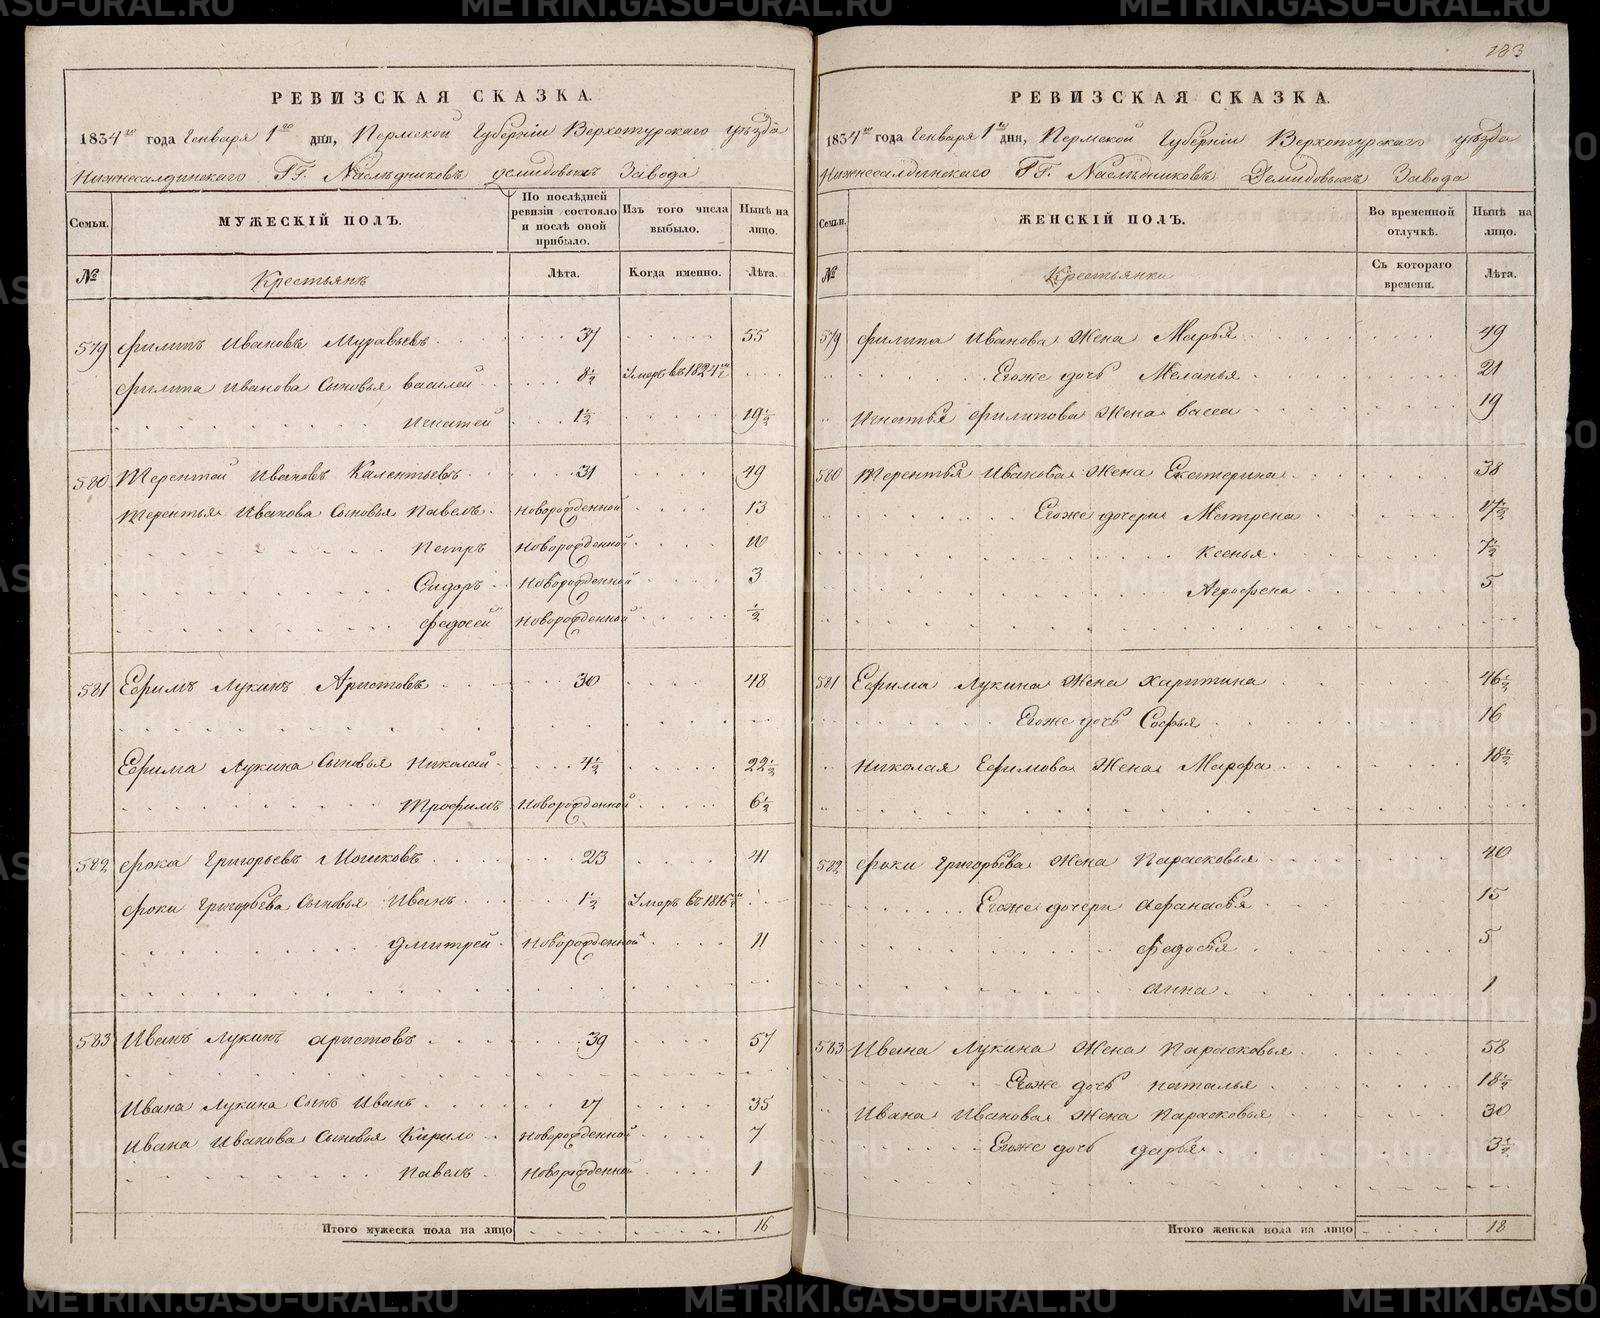 РЕВИЗСКАЯ СКАЗКА.
1834го года Генваря 1го дня, Пермской Губерніи Верхотурскаго уѣзда
Нижнесалдинскаго Гг. Наслѣдниковъ Демидовыхъ Завода
Семьи. МУЖЕСКІЙ ПОЛЪ. По послѣдней ревизіи состояло и послѣ оной прибыло. Изъ того числа выбыло. Нынѣ на лицо.
№ Крестьянъ Лѣта. Когда именно. Лѣта.
579 Филипъ Ивановъ Муравьевъ 37 55
Филипа Иванова Сыновья Василей 8½ Умеръ въ 1824мъ
Игнатей 1½ 19½
580 Терентей Ивановъ Калентьевъ 31 49
Терентья Иванова Сыновья Павелъ Новорожденной 13
Петръ Новорожденной 10
Сидоръ Новорожденной 3
Федосей Новорожденной ½
581 Ефимъ Лукинъ Аристовъ 30 48
Ефима Лукина Сыновья Николай 4½ 22½
Трофимъ Новорожденной 6½
582 Фока Григорьевъ Мошковъ 23 41
Фоки Григорьева Сыновья Иванъ 1½ Умеръ въ 1816мъ
Дмитрей Новорожденной 11
583 Иванъ Лукинъ Аристовъ 39 57
Ивана Лукина Сынъ Иванъ 17 35
Ивана Иванова Сыновья Кирило Новорожденной 7
Павелъ Новорожденной 1
Итого мужеска пола на лицо 16
183
РЕВИЗСКАЯ СКАЗКА.
1834го года Генваря 1го дня, Пермской Губерніи Верхотурскаго уѣзда
Нижнесалдинскаго Гг. Наслѣдниковъ Демидовыхъ Завода
Семьи. ЖЕНСКІЙ ПОЛЪ. Во временной отлучкѣ. Нынѣ на лицо.
№ Крестьянки Съ котораго времени. Лѣта.
579 Филипа Иванова Жена Марья 49
Егоже дочь Меланья 21
Игнатья Филипова Жена Васса 19
580 Терентья Иванова Жена Екатерина 38
Егоже дочери Матрена 17½
Ксенья 7½
Агрофена 5
581 Ефима Лукина Жена Харитина 46½
Егоже дочь Софья 16
Николая Ефимова Жена Марфа 18½
582 Фоки Григорьева Жена Парасковья 40
Егоже дочери Афанасья 15
Федосья 5
Анна 1
583 Ивана Лукина Жена Парасковья 58
Егоже дочь Наталья 18½
Ивана Иванова Жена Парасковья 30
Егоже дочь Дарья 3½
Итого женска пола на лицо 18
METRIKI.GASO-URAL.RU